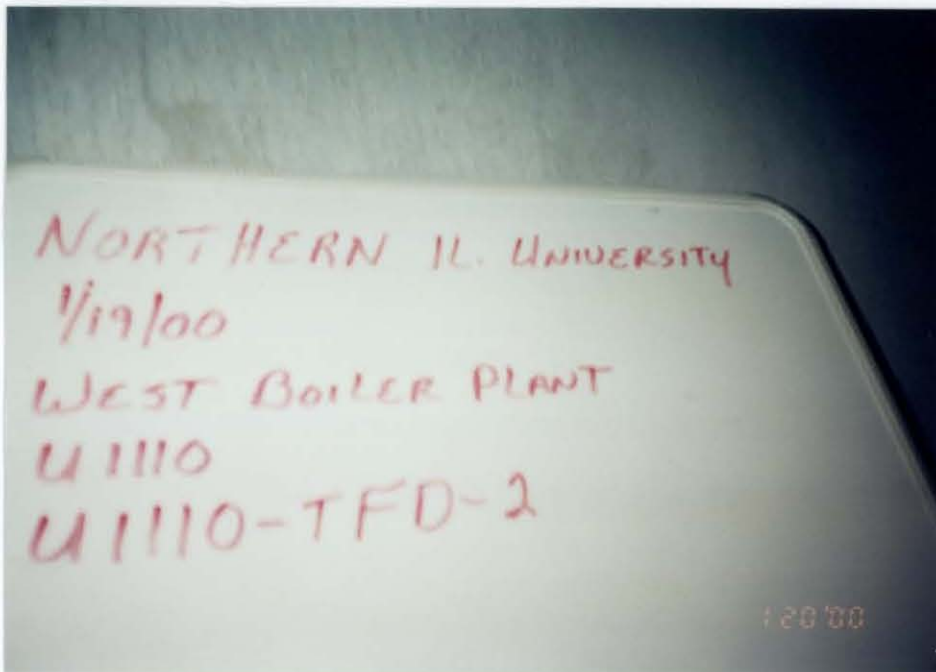 NORTHERN IL. UNIVERSITY
1/19/00
WEST BOILER PLANT
U1110
U1110-TFD-2
1 20 '00